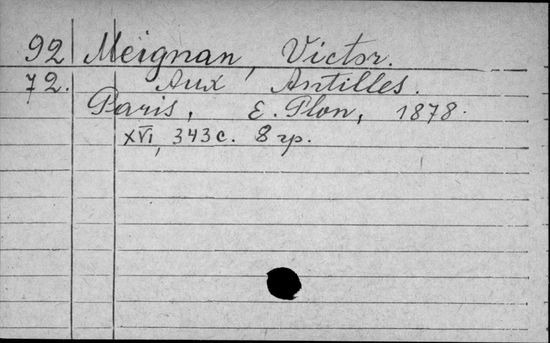 92 Meignan, Victor.
72. Aux Antilles.
Paris, E. Plon, 1878.
XVI, 343 с. 8 гр.